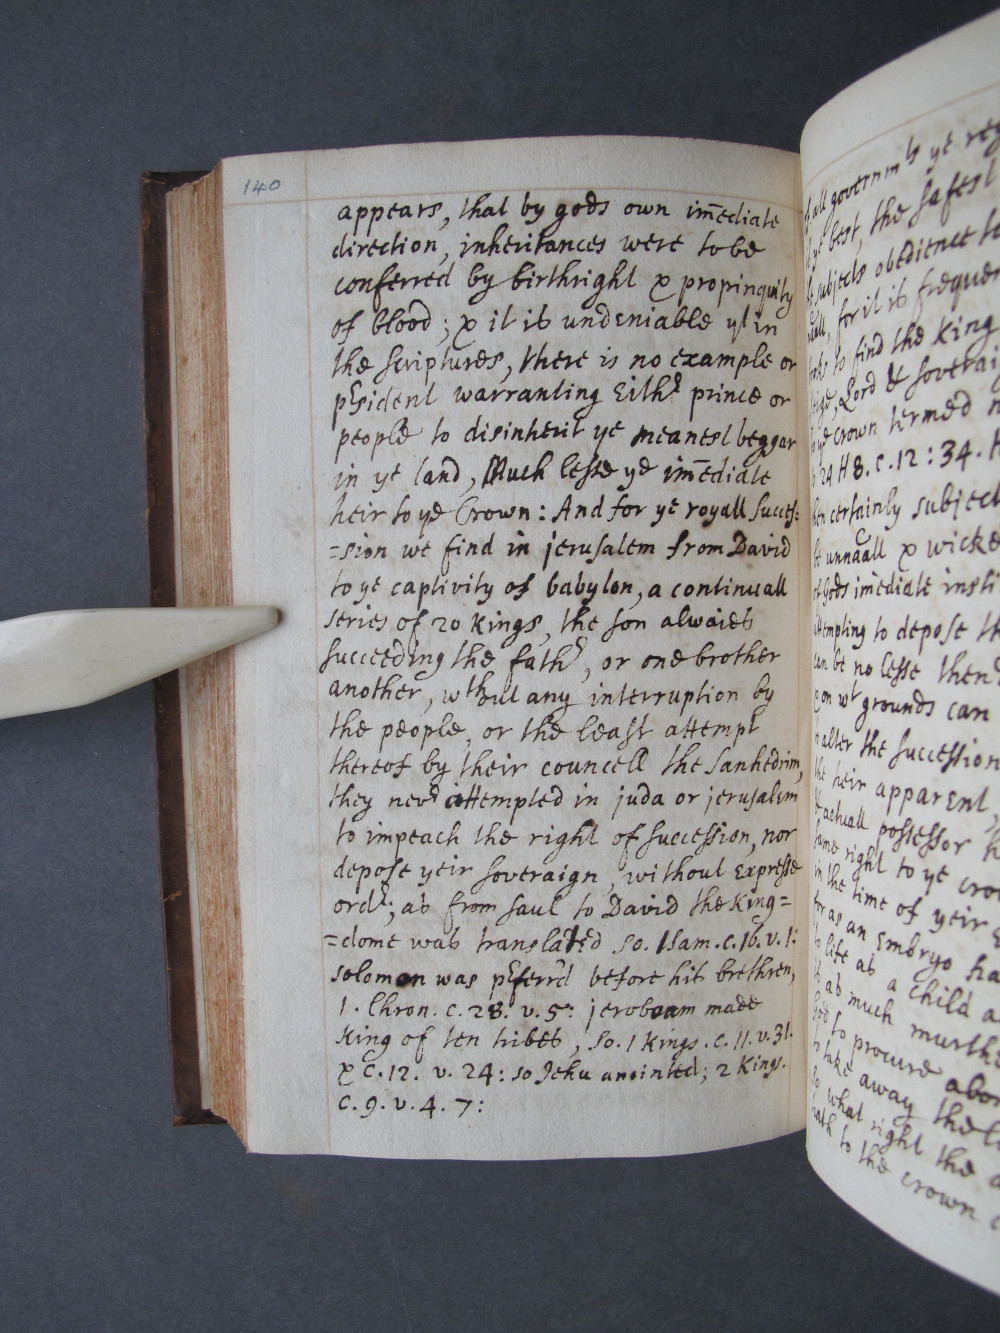 140
appears, that by gods own im̄ediate
direction, inheritances were to be
conferred by birthright & propinquity
of blood; & it is undeniable yt in
the scriptures, there is no example or
prsident warranting Eithr prince or
people to disinherit ye meanest beggar
in ye land, Much lesse ye im̄ediate
heir to ye Crown: And for ye royall succes=
=sion we find in jerusalem from David
to ye captivity of babylon, a continuall
series of 20 kings, the son alwaies
succeeding the fathr, or one brother
another, wthout any interruption by
the people, or the least attempt
thereof by their councell the sanhedrim,
they nevr attempted in juda or jerusalem
to impeach the right of succession, nor
depose yeir soveraign, without Expresse
ordr; as from saul to David the king=
=dome was translated so. 1 sam. c. 16. v. 1:
solomon was prferrd before his brethren,
1. Chron. c. 28. v. 5: jeroboam made
king of ten tribes, so. 1 kings. c. 11. v. 31.
& c. 12. v. 24: so Jehu anointed; 2 kings.
c. 9. v. 4. 7:
all governmts ye
best, the safest
subjects obedience
for it is
to find the king
Lord & soverai
crown termed
24 H 8. c. 12: 34.
certainly subject
unnāall & wicke
Gods im̄ediate insti
tempting to depose
can be no lesse then
on wt grounds can
alter the succession
the heir apparent,
actuall possessor
same right to ye crow
in the time of yeir
for as an Embryo ha
life as a child
as much murthe
to procure abor
take away the
what right the
to the crown